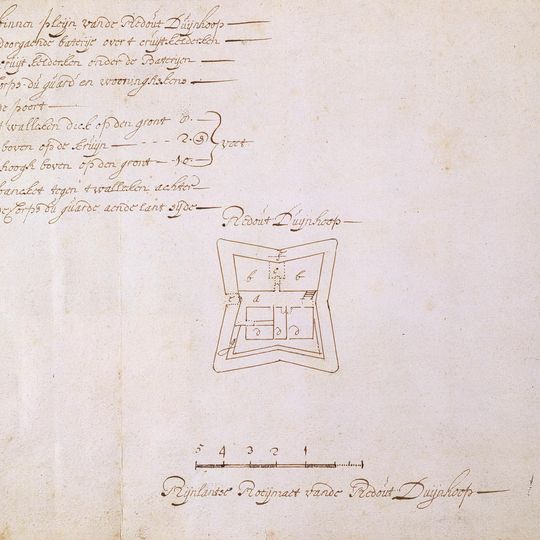 binnen pleijn vande Redout Duijnhoop
doorgaende baterije over t cruijtkelderken
cruijt kelderken onder de Baterijen
Corps du guard en wooninskens
de poort
t walleken dick op den gront 8.
boven op de kruijn 2. voet
hoogh boven op den gront 10.
bancket tegen t walleken achter
de Corps du guarde aende lant sijde
Redout Duijnhoop
f
b c b
e a
d d d
g
5 4 3 2 1
Rijnlantse Roeijmaet vande Redout Duijnhoop